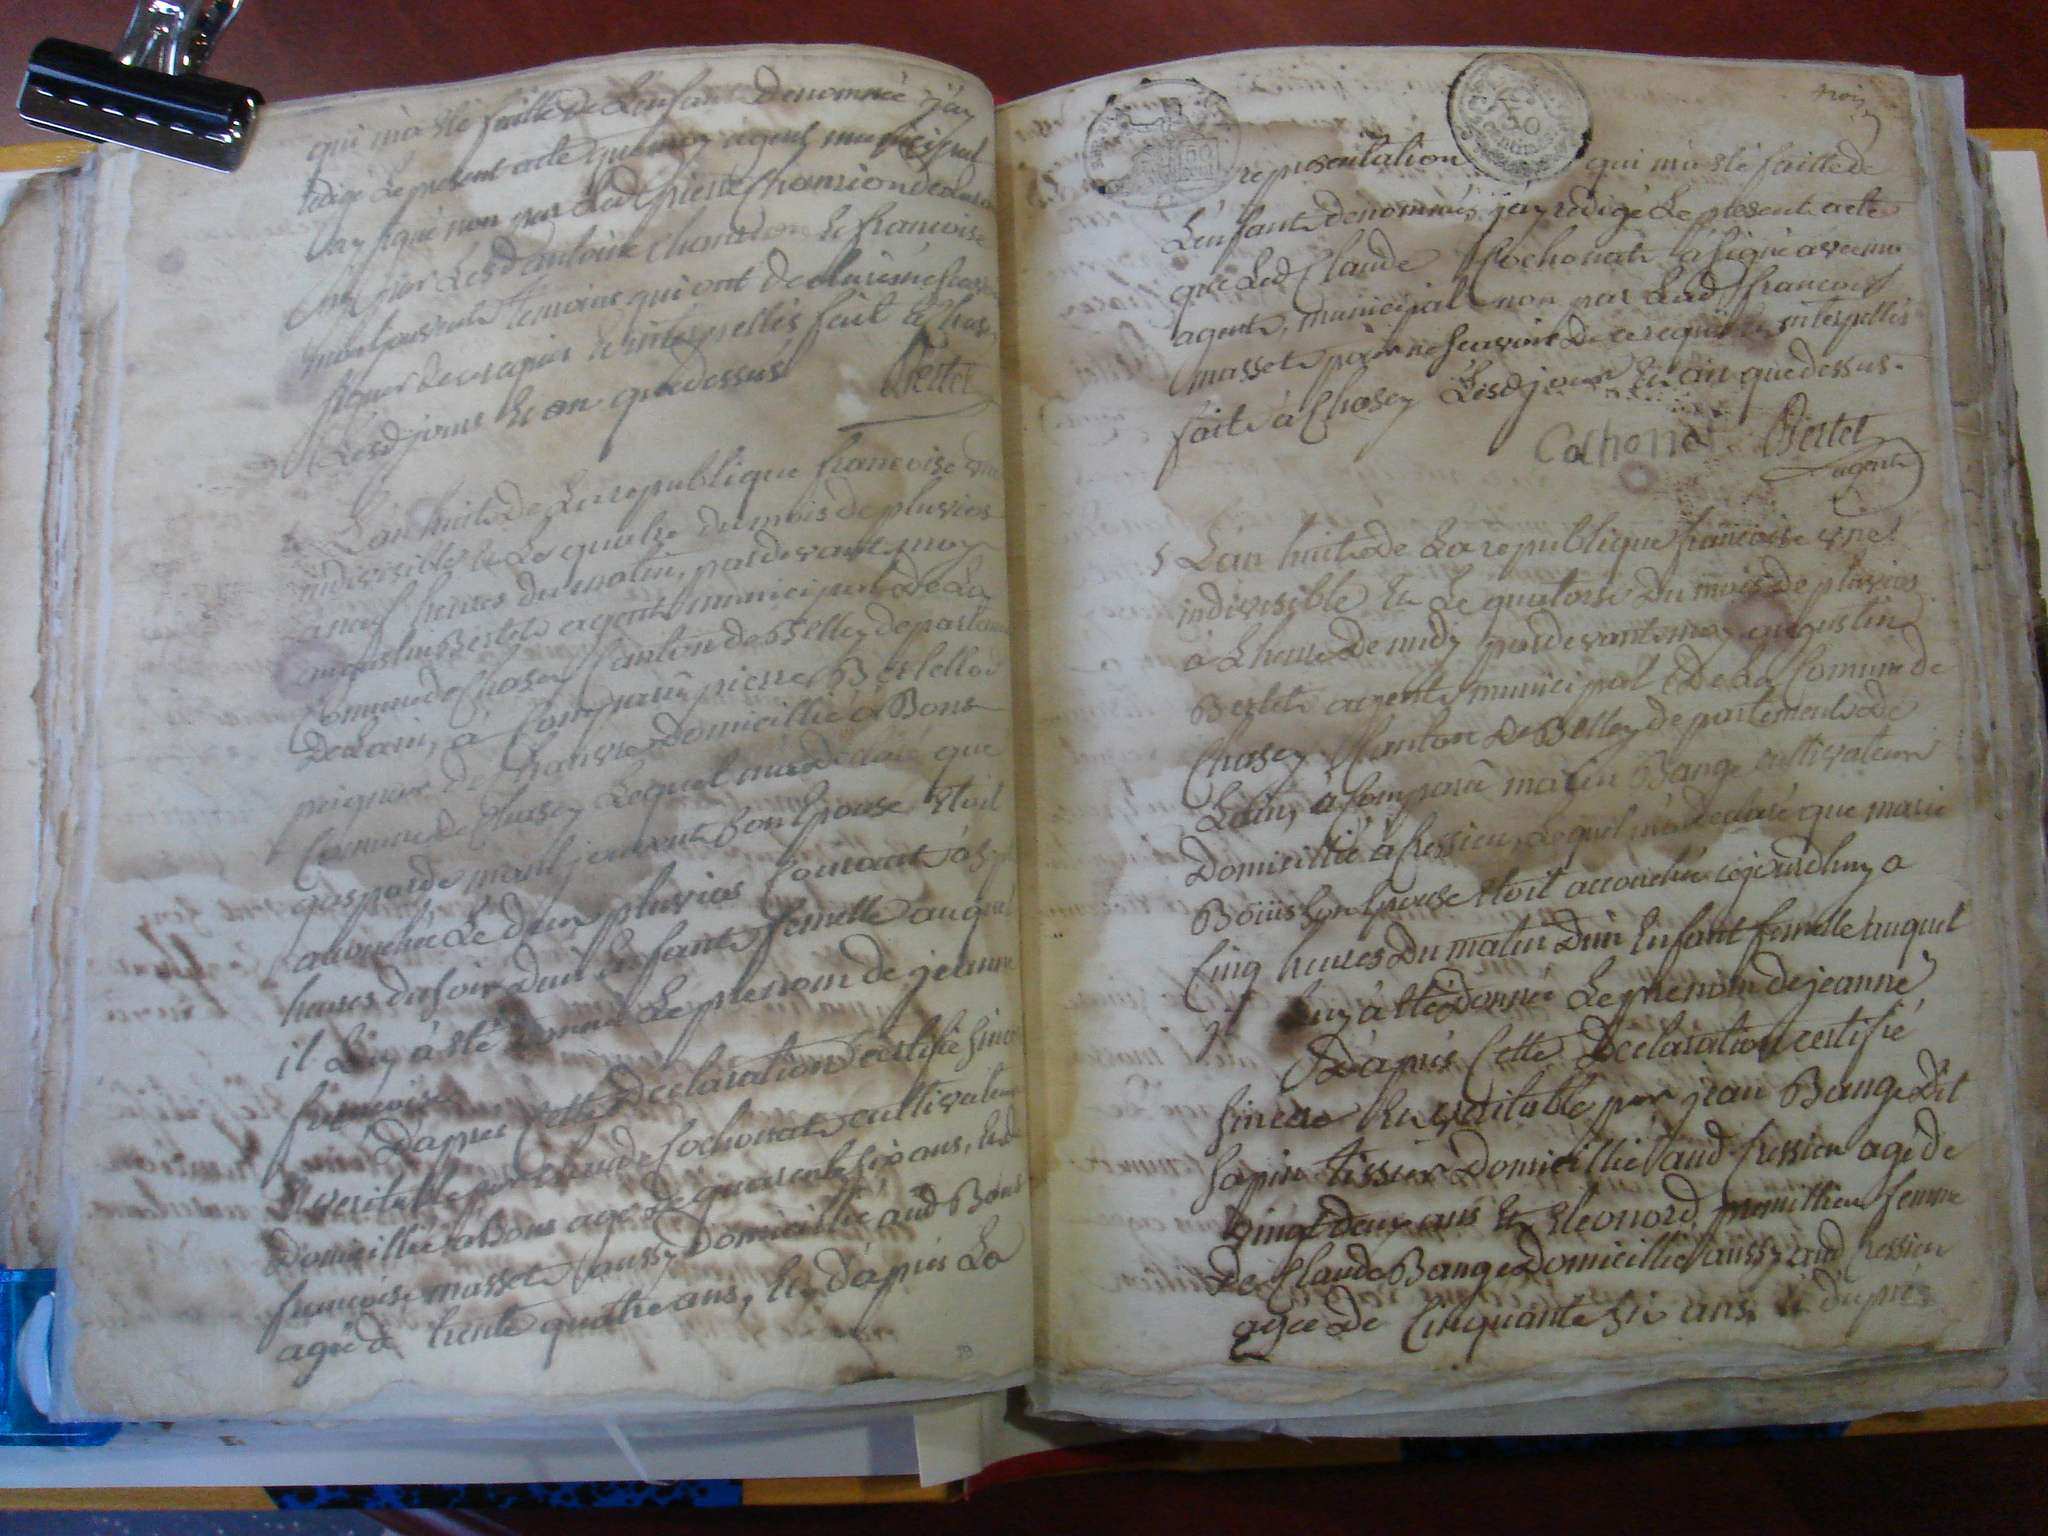 qui m'a été faitte de L'enfant Denommée j'ay
rédigé Le present acte que moy agent municipal
ay signé non pas Led pierre Chamion
ny par Lesd antoine Chamion & francoise
temoins qui ont declaré ne scavoir
signer de ce requis & interpellés fait à Chasey
Lesd jours & an que dessus
Bertet
L'an huit de La republique francoise une
indivisible & Le quatre du mois de pluvios
a neuf heures du matin, pardevant moy
augustin Bertet agent municipal de La
Comune de Chasey Canton de Belley departement
De Lain, à Comparû pierre Berthellot
peigneur de chanvre domicillié à Bons
Comune de Chasey Lequel m'a déclaré que
gasparde son Epouse Etoit
accouchée Le deux pluvios Courant à sept
heures du soir d'un Enfant femelle auquel
il Luy à été donné Le prenom de jeanne
francoise
D'apres Cette Declaration certifié sincere
& veritable par Claude Cochonat cultivateur
Domicillié a Bons agé de quarente six ans, & de
francoise masset aussy domicillié aud Bons
agée de trente quatre ans, & D'apres La
trois
50
representation qui m'a été faitte de
L'enfant denommés j'ay rédigé Le present acte
que Led Claude Cochonat à signé avec moy
agent, municipal non pas Lad francoise
masset pour ne scavoir de ce requis & interpellés
fait à Chasey Lesd jour & an que dessus.
Cochona Bertet
agent
5 L'an huit de La republique francoise une
indivisible & Le quatorse Du mois de pluvios
à L'heure De midy pardevant moy augustin
Bertet agent municipal De La Comune de
Chasey Canton De Belley departement De
Lain, à Comparû matin Bange cultivateur
Domicillié à Cressieu, Lequel m'a Declaré que marie
Boüis son Epouse etoit accouchée cejourdhuy a
Cinq heures Du matin D'un Enfant femelle auquel
il Luy à été donnée Le prenom de jeanne
D'apres Cette Declaration certifié
sincere & veritable par jean Bange Dit
sapin tissier Domicillié aud Cressieu agé de
vingt deux ans & Eleonord promillieu femme
De Claude Bange Domicillié aussy aud Cressieu
agée De Cinquante six ans, & D'apres